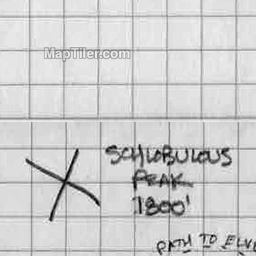 MapTiler.com
SCHLOBULOUS
PEAK
1800'
PATH TO